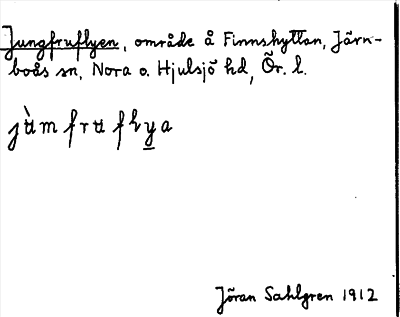 Jungfruflyen, område å Finnshyttan, Järn-
boås sn, Nora o. Hjulsjö hd, Ör. l.
jùm fru flya
Jöran Sahlgren 1912